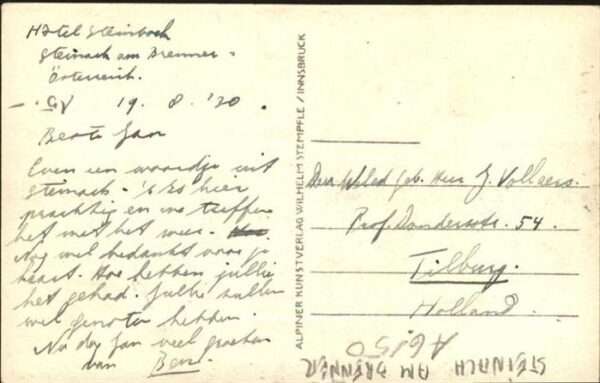 Hotel Steinbock
Steinach am Brenner -
Österreich.
19. 8. '20.
Beste Jan
Even een woordje uit
Steinach. 't Is hier
prachtig en we treffen
het met het weer.
Nog wel bedankt voor je
kaart. Hoe hebben jullie
het gehad. Jullie zullen
wel genoten hebben.
Nu dag Jan veel groeten
van
ALPINER KUNSTVERLAG WILHELM STEMPFLE / INNSBRUCK
geb. Heer J. Vollaers.
Prof. Dondersstr. 54.
Tilburg.
Holland.
A6150
STEINACH AM BRENNER